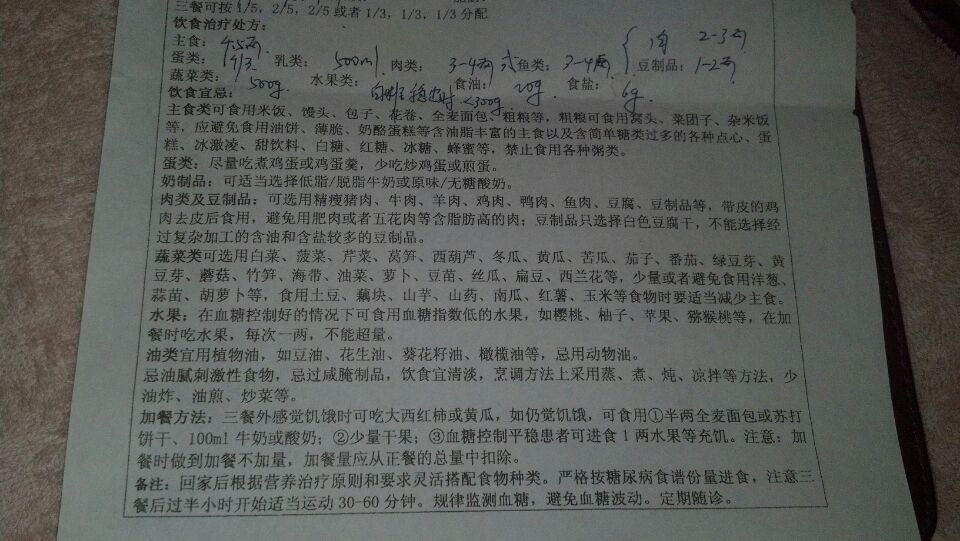 三餐可按 1/5，2/5，2/5 或者 1/3，1/3，1/3 分配
饮食治疗处方：
主食：4.5两 { 肉 2-3两
蛋类：1个 乳类：500ml 肉类：3-4两 或鱼类：3-4两 豆制品：1-2两
蔬菜类：500g 水果类：血糖稳定时<300g 食油：20g 食盐：6g
饮食宜忌：
主食类可食用米饭、馒头、包子、花卷、全麦面包、粗粮等，粗粮可食用窝头、菜团子、杂米饭
等，应避免食用油饼、薄脆、奶酪蛋糕等含油脂丰富的主食以及含简单糖类过多的各种点心、蛋
糕、冰激凌、甜饮料、白糖、红糖、冰糖、蜂蜜等，禁止食用各种粥类。
蛋类：尽量吃煮鸡蛋或鸡蛋羹，少吃炒鸡蛋或煎蛋。
奶制品：可适当选择低脂/脱脂牛奶或原味/无糖酸奶。
肉类及豆制品：可选用精瘦猪肉、牛肉、羊肉、鸡肉、鸭肉、鱼肉、豆腐、豆制品等，带皮的鸡
肉去皮后食用，避免用肥肉或者五花肉等含脂肪高的肉；豆制品只选择白色豆腐干，不能选择经
过复杂加工的含油和含盐较多的豆制品。
蔬菜类可选用白菜、菠菜、芹菜、莴笋、西葫芦、冬瓜、黄瓜、苦瓜、茄子、番茄、绿豆芽、黄
豆芽、蘑菇、竹笋、海带、油菜、萝卜、豆苗、丝瓜、扁豆、西兰花等，少量或者避免食用洋葱、
蒜苗、胡萝卜等，食用土豆、藕块、山芋、山药、南瓜、红薯、玉米等食物时要适当减少主食。
水果：在血糖控制好的情况下可食用血糖指数低的水果，如樱桃、柚子、苹果、猕猴桃等，在加
餐时吃水果，每次一两，不能超量。
油类宜用植物油，如豆油、花生油、葵花籽油、橄榄油等，忌用动物油。
忌油腻刺激性食物，忌过咸腌制品，饮食宜清淡，烹调方法上采用蒸、煮、炖、凉拌等方法，少
油炸、油煎、炒菜等。
加餐方法：三餐外感觉饥饿时可吃大西红柿或黄瓜，如仍觉饥饿，可食用①半两全麦面包或苏打
饼干、100ml 牛奶或酸奶；②少量干果；③血糖控制平稳患者可进食 1 两水果等充饥。注意：加
餐时做到加餐不加量，加餐量应从正餐的总量中扣除。
备注：回家后根据营养治疗原则和要求灵活搭配食物种类。严格按糖尿病食谱份量进食，注意三
餐后过半小时开始适当运动 30-60 分钟。规律监测血糖，避免血糖波动。定期随诊。